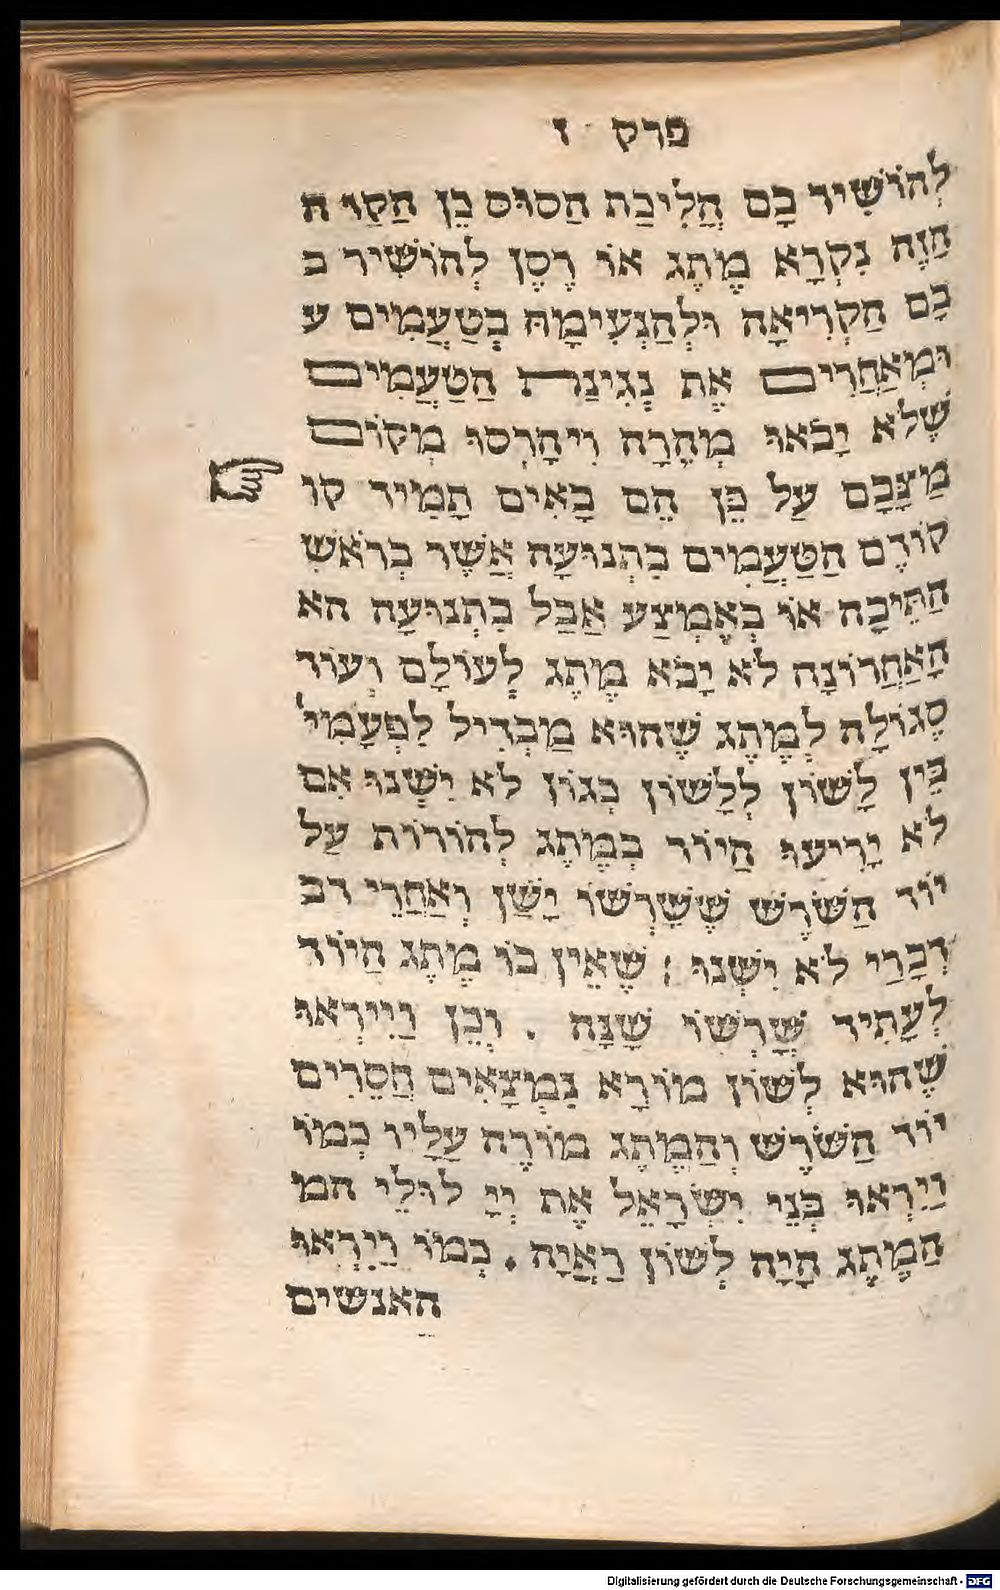 פרק ז
לְהוֹשִׁיר בָם הֲלִיכַת הַסוּס כֵן הַקַו ה
הַזֶה נִקְרָא מֶתֶג אוֹ רֶסֶן לְהוֹשִׁיר ב
בָם הַקְרִיאָה וּלְהַנְעִימָהּ בְטַעֲמִים ע
וּמְאַחֲרִים אֶת נְגִינַת הַטַעֲמִים
שֶׁלֹא יָבֹאוּ מְהֵרָה וִיהָרְסוּ מְקוֹם
מַצָבָם עַל כֵן הֵם בָאִים תָמִיד קו
קוֹדֶם הַטַעֲמִים בִתְנוּעָה אֲשֶׁר בְרֹאשׁ
הַתֵיבָה אוֹ בְאֶמְצַע אֲבָל בִתְנוּעָה הא
הָאַחֲרוֹנָה לֹא יָבֹא מֶתֶג לְעוֹלָם וְעוֹד
סְגוֹלָה לְמֶתֶג שֶׁהוּא מַבְדִיל לִפְעָמִי'
בֵין לָשׁוֹן לְלָשׁוֹן כְגוֹן לֹא יִשְׁנוּ אִם
לֹא יָרִיעוּ הַיוֹד בְמֶתֶג לְהוֹרוֹת עַל
יוֹד הַשֹׁרֶשׁ שֶׁשָׁרְשׁוֹ יָשַׁן וְאַחֲרֵי דב
דְבָרַי לֹא יִשְׁנוּ : שֶׁאֵין בוֹ מֶתֶג הַיוֹד
לְעָתִיד שָׁרְשׁוֹ שָׁנָה . וְכֵן וַיִירְאוּ
שֶׁהוּא לְשׁוֹן מוֹרָא נִמְצָאִים חֲסֵרִים
יוֹד הַשֹׁרֶשׁ וְהַמֶתֶג מוֹרֶה עָלָיו כְמוֹ
וַיִרְאוּ בְנֵי יִשְׂרָאֵל אֶת יְיָ לוּלֵי המ
הַמֶתֶג הָיָה לְשׁוֹן רְאִיָה . כְמוֹ וַיִרְאוּ
האנשים